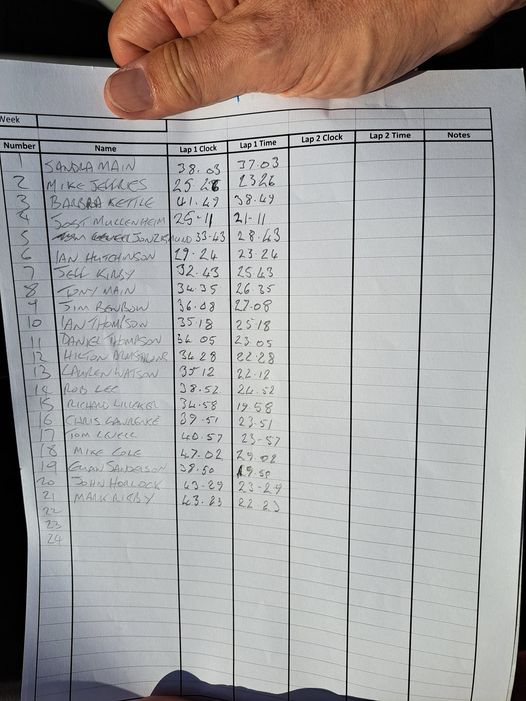 Week
Number Name Lap 1 Clock Lap 1 Time Lap 2 Clock Lap 2 Time Notes
1 SANDRA MAIN 38.03 37.03
2 MIKE JEFFRIES 25 26 2326
3 BARBRA KETTLE 41.49 38.49
4 JOST MULLENHEIM 25-11 21-11
5 JON 33-43 28.43
6 IAN HUTCHINSON 29.24 23.24
7 JEFF KIRBY 32.43 25.43
8 TONY MAIN 34.35 26.35
9 JIM BENBOW 36.08 27.08
10 IAN THOMPSON 35 18 25.18
11 DANIEL THOMPSON 34.05 23.05
12 HILTON ARMSTRONG 34 28 22.28
13 LAUREN WATSON 35 12 22.12
14 ROB LEE 38.52 24.52
15 RICHARD LILLEKER 34.58 19.58
16 CHRIS LAWRENCE 39.51 23.51
17 TOM LEVELL 40.57 23-57
18 MIKE COLE 47.02 29.02
19 EWAN SANDERSON 38.50 19.50
20 JOHN HORLOCK 43-29 23-29
21 MARK RIGBY 43.23 22.23
22
23
24